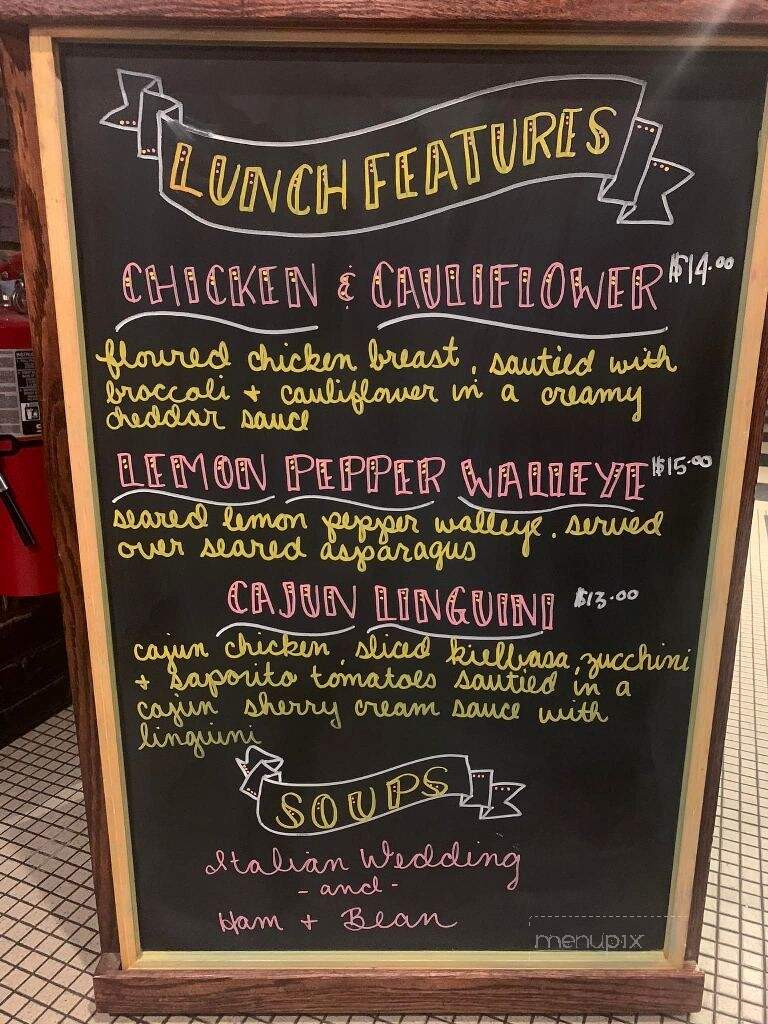 LUNCH FEATURES
CHICKEN & CAULIFLOWER $14.00
floured chicken breast, sautied with
broccoli + cauliflower in a creamy
cheddar sauce
LEMON PEPPER WALLEYE $15.00
seared lemon pepper walleye, served
over seared asparagus
CAJUN LINGUINI $13.00
cajun chicken, sliced kielbasa, zucchini
+ saporito tomatoes sautied in a
cajun sherry cream sauce with
linguini
SOUPS
Italian Wedding
- and -
Ham + Bean
menupix